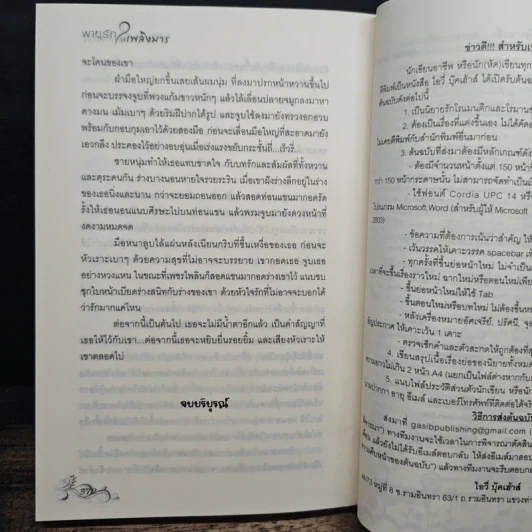 พายุรักในเพลิงมาร
จะโดนของเขา
ฝ่ามือใหญ่ยกขึ้นเสยเส้นผมนุ่ม ที่ลงมาปรกหน้าหวานขึ้นไป
ก่อนจะบรรจงจูบที่พวงแก้มขาวหนักๆ แล้วไล้เลื่อนปลายจมูกลงมาหา
คางมน เม้มเบาๆ ด้วยริมฝีปากได้รูป และจูบไซ้ลงมายังทรวงอกอวบ
พร้อมกับกอบกุมเอาไว้ด้วยสองมือ ก่อนจะเลื่อนมือใหญ่ที่สะอาดมายัง
เอวกลึง ประคองไว้อย่างอบอุ่นเมื่อเร่งแรงขยับกระชั้นถี่...เร็วรี่.
ชายหนุ่มทำให้เธอแทบขาดใจ กับบทรักและสัมผัสที่ทั้งหวาน
และดุระคนกัน ร่างบางนอนหายใจรวยระริน เมื่อเขาฝังร่างลึกอยู่ในร่าง
ของเธอนิ่งและนาน กว่าจะยอมถอนออก แล้วสอดท่อนแขนมากอดรัด
รั้งให้เธอนอนแนบศีรษะไปบนท่อนแขน แล้วพรมจูบมายังดวงหน้าที่
งดงามหมดจด
มือหนาลูบไล้แผ่นหลังเนียนกริบที่ชื้นเหงื่อของเธอ ก่อนจะ
หัวเราะเบาๆ ด้วยความสุขที่ไม่อาจจะบรรยาย เขากอดเธอ จูบเธอ
อย่างหวงแหน ในขณะที่เพชรไพลินก็สอดแขนมากอดร่างเขาไว้ แนบซบ
ซุกใบหน้าเบียดร่างสนิทกับร่างของเขา ด้วยหัวใจรักที่ไม่อาจจะบอกได้
ว่ารักมากแค่ไหน
ต่อจากนี้เป็นต้นไป เธอจะไม่มีน้ำตาอีกแล้ว เป็นคำสัญญาที่
เธอให้ไว้กับเขา...ต่อจากนี้เธอจะหยิบยื่นรอยยิ้ม และเสียงหัวเราะให้
เขาตลอดไป
จบบริบูรณ์
ข่าวดี!!! สำหรับ
นักเขียนอาชีพ หรือนัก(หัด)เขียนทุก
ตีพิมพ์เป็นหนังสือ ไอวี่ บุ๊คเฮ้าส์ ได้เปิดรับต้น
ต้นฉบับดังต่อไปนี้
1. เป็นนิยายรักโรแมนติกและโรมาน
2. ต้องเป็นเรื่องที่แต่งขึ้นเอง ไม่ได้คัด
ไม่เคยตีพิมพ์กับสำนักพิมพ์อื่นมาก่อน
3. ต้นฉบับที่ส่งมาต้องมีหลักเกณฑ์ดัง
- ต้องมีจำนวนหน้าตั้งแต่ 150 หน้า
กว่า 150 หน้ากระดาษนั้น ไม่สามารถจัดทำเป็น
- ใช้ฟอนต์ Cordia UPC 14 หรือ
โปรแกรม Microsoft Word (สำหรับผู้ใช้ Microsoft
2003)
- ข้อความที่ต้องการเน้นว่าสำคัญ ให้
- เว้นวรรคให้เคาะวรรค spacebar
- ทุกครั้งที่ขึ้นย่อหน้าใหม่ ไม่จำเป็น
เวลาที่จะขึ้นเรื่องราวใหม่ ฉากใหม่หรือตอนใหม่เพีย
- ขึ้นย่อหน้าใหม่ให้ใช้ Tab
- ขึ้นตอนใหม่หรือบทใหม่ ไม่ต้องขึ้น
- หลังเครื่องหมายอัศเจรีย์, ปรัศนี, จุล
สัญประกาศ ให้เคาะเว้น 1 เคาะ
- ตรวจเช็กคำและตัวสะกดให้ถูกต้องที่สุ
4. เขียนสรุปเนื้อเรื่องย่อของนิยายทั้งหมด
ความยาวไม่เกิน 2 หน้า A4 (แยกเป็นไฟล์ต่างหากกับ
5. แนบไฟล์ประวัติส่วนตัวนักเขียน หรือนัก
นามปากกา อายุ อีเมล์ และเบอร์โทรศัพท์ที่ติดต่อได้จริ
วิธีการส่งต้นฉบับ
ส่งมาที่ gasibpublishing@gmail.com
ทางทีมงานจะใช้เวลาในการพิจารณาต้น
แล้วยังไม่ได้รับอีเมล์ตอบกลับ ให้ส่งอีเมล์มาสอบ
แล้วทางทีมงานจะรีบตอบ
ไอวี่ บุ๊คเฮ้าส์
หมู่ที่ 8 ซ.รามอินทรา 63/1 ถ.รามอินทรา แขวงท่า